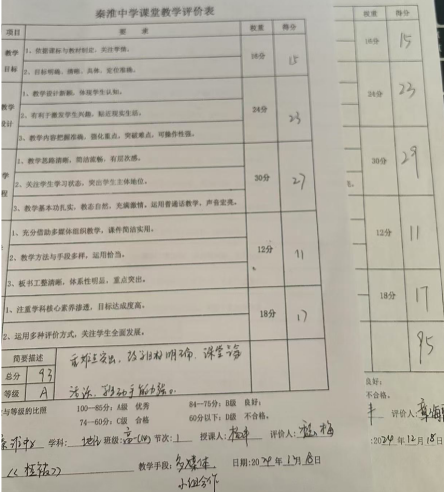 秦淮中学课堂教学评价表
项目 要 求 权重 得分
教学目标 1、依据课标与教材制定，关注学情。 16分 15
2、目标明确、清晰、具体、定位准确。
教学设计 1、教学设计新颖，体现学生认知。 24分 23
2、有利于激发学生兴趣，贴近现实生活。
3、教学内容把握准确，强化重点，突破难点，可操作性强。
学程 1、教学思路清晰，简洁流畅，有层次感。 30分 27
2、关注学生学习状态，突出学生主体地位。
3、教学基本功扎实，教态自然，充满激情，运用普通话教学，声音宏亮。
1、充分借助多媒体组织教学，课件简洁实用。 12分 11
2、教学方法与手段多样，运用恰当。
3、板书工整清晰，体系性明显，重点突出。
1、注重学科核心素养渗透，目标达成度高。 18分 17
2、运用多种评价方式，关注学生全面发展。
简要描述 重难点突出，教学目标明确，课堂
总分 93 活泼，
等级 A
与等级的比照 100—85分：A级 优秀 84—75分：B级 良好；
74—60分：C级 合格 60分以下：D级 不合格。
学科： 地理 班级： 节次：1 授课人： 评价人：
教学手段：多媒体 日期：2024年12月18日
小组合作
权重 得分
16分 15
24分 23
30分 29
12分 11
18分 17
95
良好；
不合格。
评价人：
:2024年12月18日